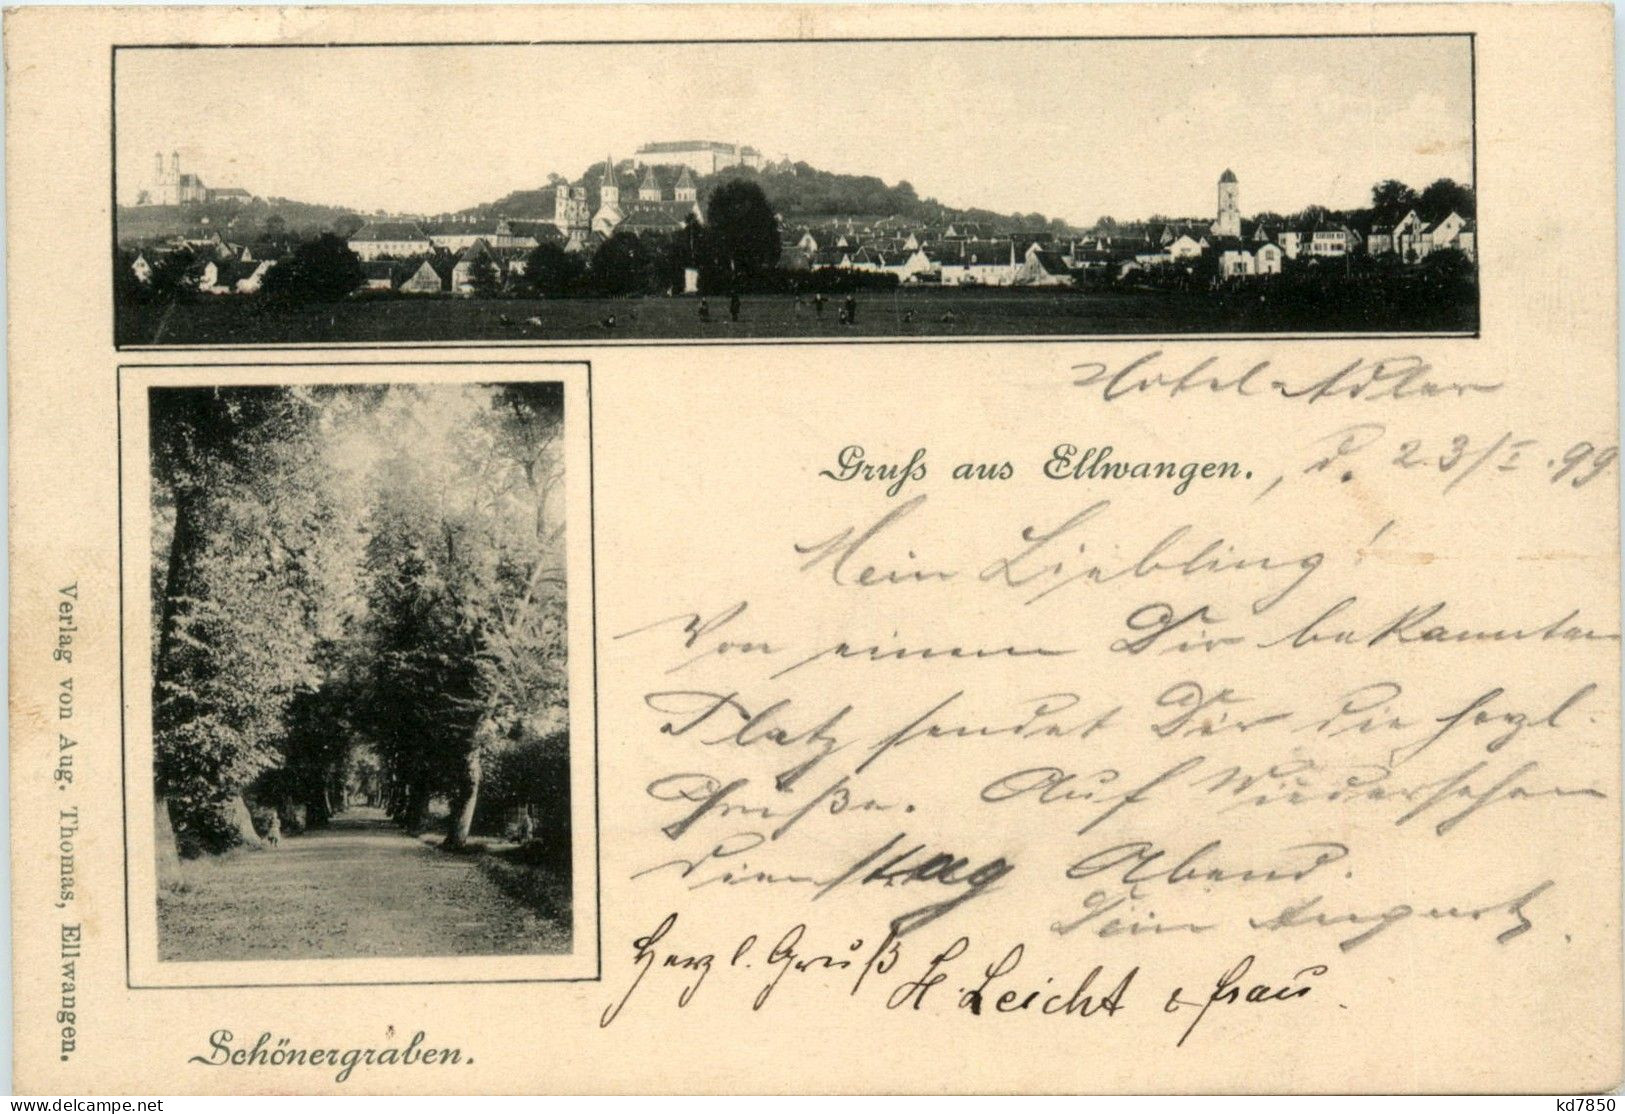 Hotel Adler
Gruss aus Ellwangen. , d. 23/I. 99
Mein Liebling!
Von einem Dir bekannten
Platz sendet Dir die herzl.
Grüße. Auf Wiedersehen
Dienstag Abend.
Dein August.
Herzl. Gruß H. Leicht & Frau.
Schönergraben.
Verlag von Aug. Thomas, Ellwangen.
kd7850